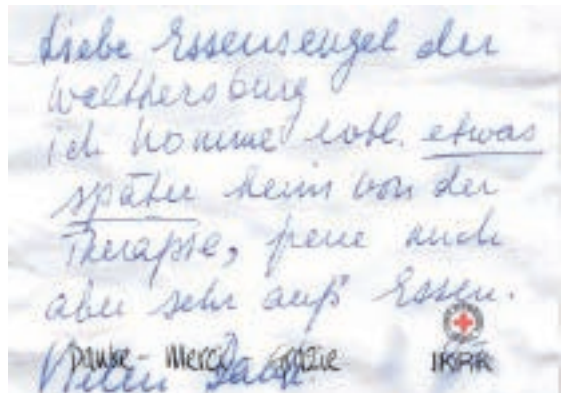 Liebe Essensengel der
Welthersburg
ich komme evtl. etwas
später heim von der
Therapie, freue mich
aber sehr aufs Essen.
Danke - Merci - Grazie
Vielen Dank
IKRK